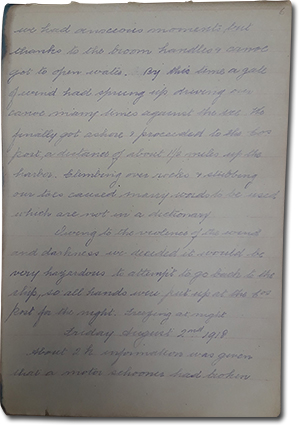 we had anxious moments but
thanks to the broom handles canoe
got to open water. By this time a gale
of wind had sprung up driving our
canoe many times against the ice. We
finally got ashore & proceeded to the
post, a distance of about 1½ miles up the
harbor. Climbing over rocks & stubbing
our toes caused many words to be used
which are not in a dictionary.
Owing to the violence of the wind
and darkness we decided it would be
very hazardous to attempt to go back to the
ship, so all hands were put up at the
Post for the night. at night
Friday August 2nd 1918
About 2 h information was given
that a motor schooner had broken